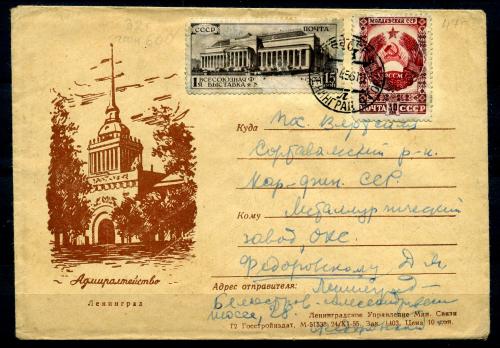 СССР ПОЧТА
1я ВСЕСОЮЗНАЯ Ф.
ВЫСТАВКА
15
МОЛДАВСКАЯ ССР
РССМ
ПОЧТА 30 СССР
ЛЕНИНГРАД
Куда
Пос. Вяртсиля
Сортавальский р-н.
Кар-фин. ССР.
Кому
Металлургический
завод, ОКС.
Федоровскому Д.
Адмиралтейство
Ленинград
Адрес отправителя: Ленинград-
Белоостров.
шоссе, 28.
Ленинградское Управление Мин. Связи
Т2 Госстройиздат, М-51338, 24/XI-55. Зак. 1403. Цена 10 коп.